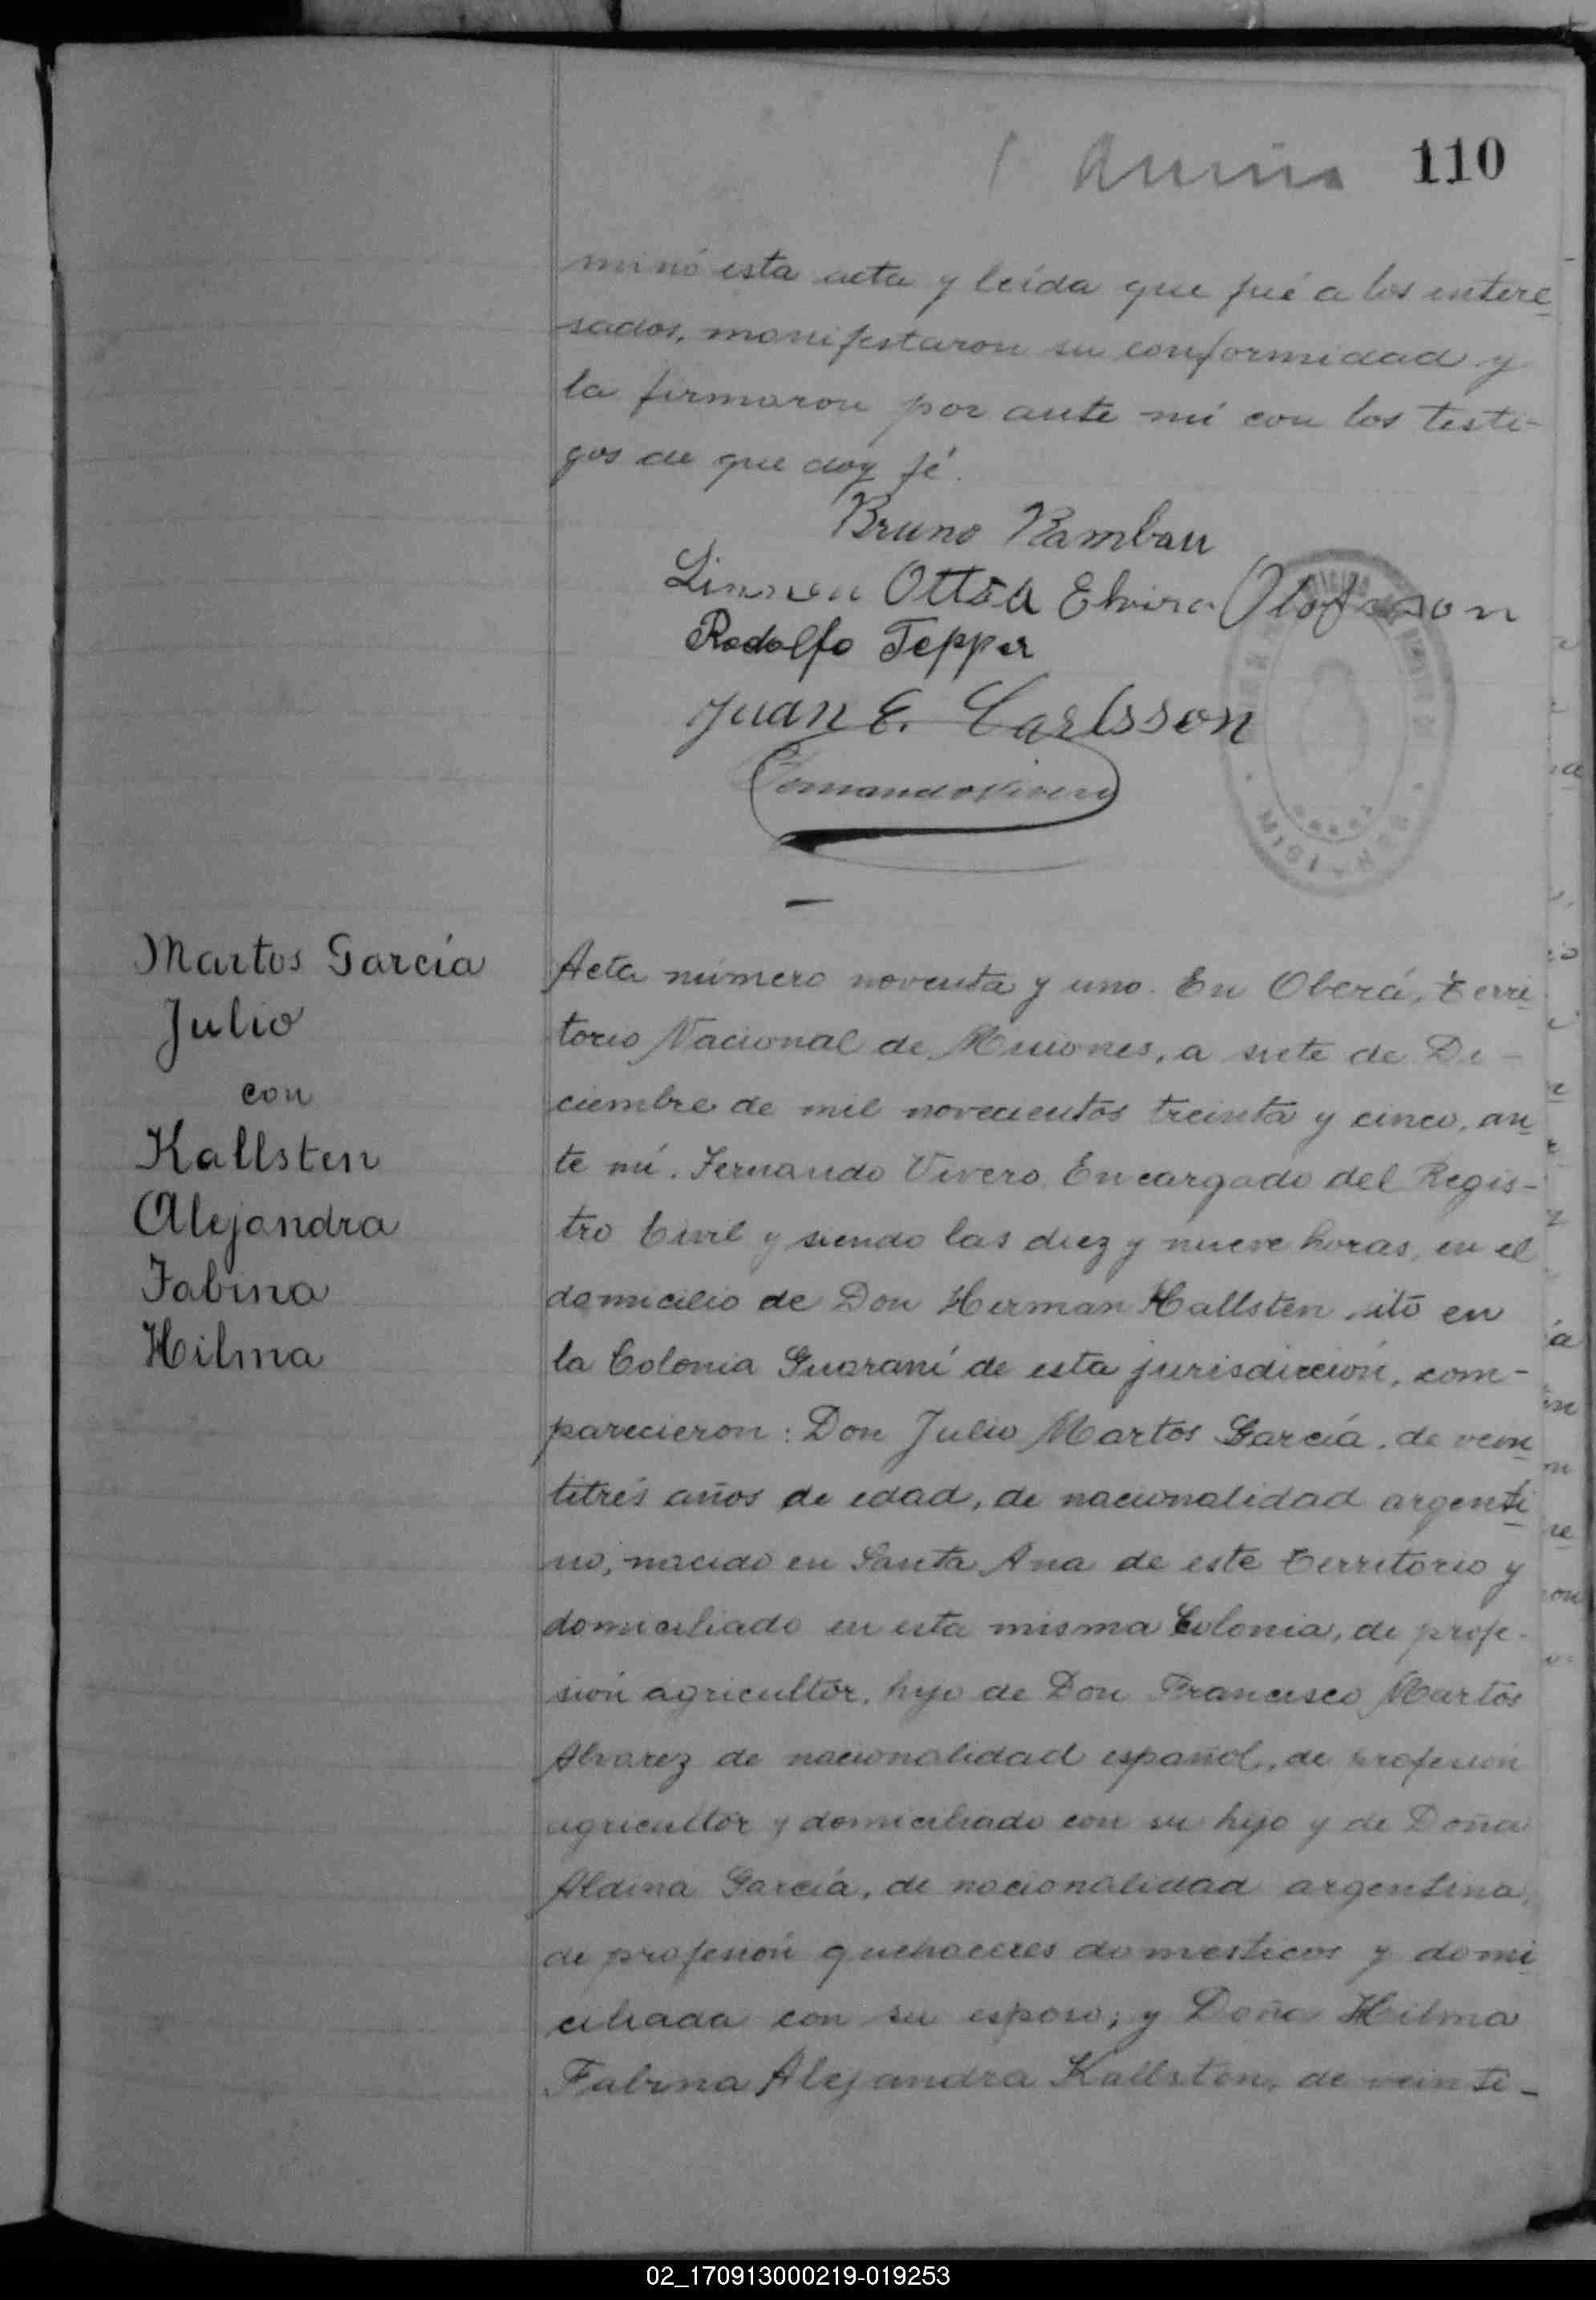 110
minó esta acta y leída que fué a los intere
sados, manifestaron su conformidad y
la firmaron por ante mí con los testi-
gos de que doy fé.
Bruno Rambau
Linnea Ottoa Elvira Olofsson
Rodolfo Tepper
Juan E. Carlsson
Fernando Vivero
MISIONES
Martos García
Julio
con
Kallsten
Alejandra
Fabina
Hilma
Acta número noventa y uno. En Oberá, Terri
torio Nacional de Misiones, a siete de Di-
ciembre de mil novecientos treinta y cinco, an
te mí. Fernando Vivero, Encargado del Regis-
tro Civil y siendo las diez y nueve horas, en el
domicilio de Don Herman Kallsten, sito en
la Colonia Guaraní de esta jurisdicción, com-
parecieron: Don Julio Martos García, de vein
titrés años de edad, de nacionalidad argenti
no, nacido en Santa Ana de este Territorio y
domiciliado en esta misma Colonia, de profe-
sión agricultor, hijo de Don Francisco Martos
Alvarez de nacionalidad español, de profesión
agricultor y domiciliado con su hijo y de Doña
Aldina García, de nacionalidad argentina,
de profesión quehaceres domesticos y domi
ciliada con su esposo; y Doña Hilma
Fabina Alejandra Kallsten, de veinti-
02_170913000219-019253